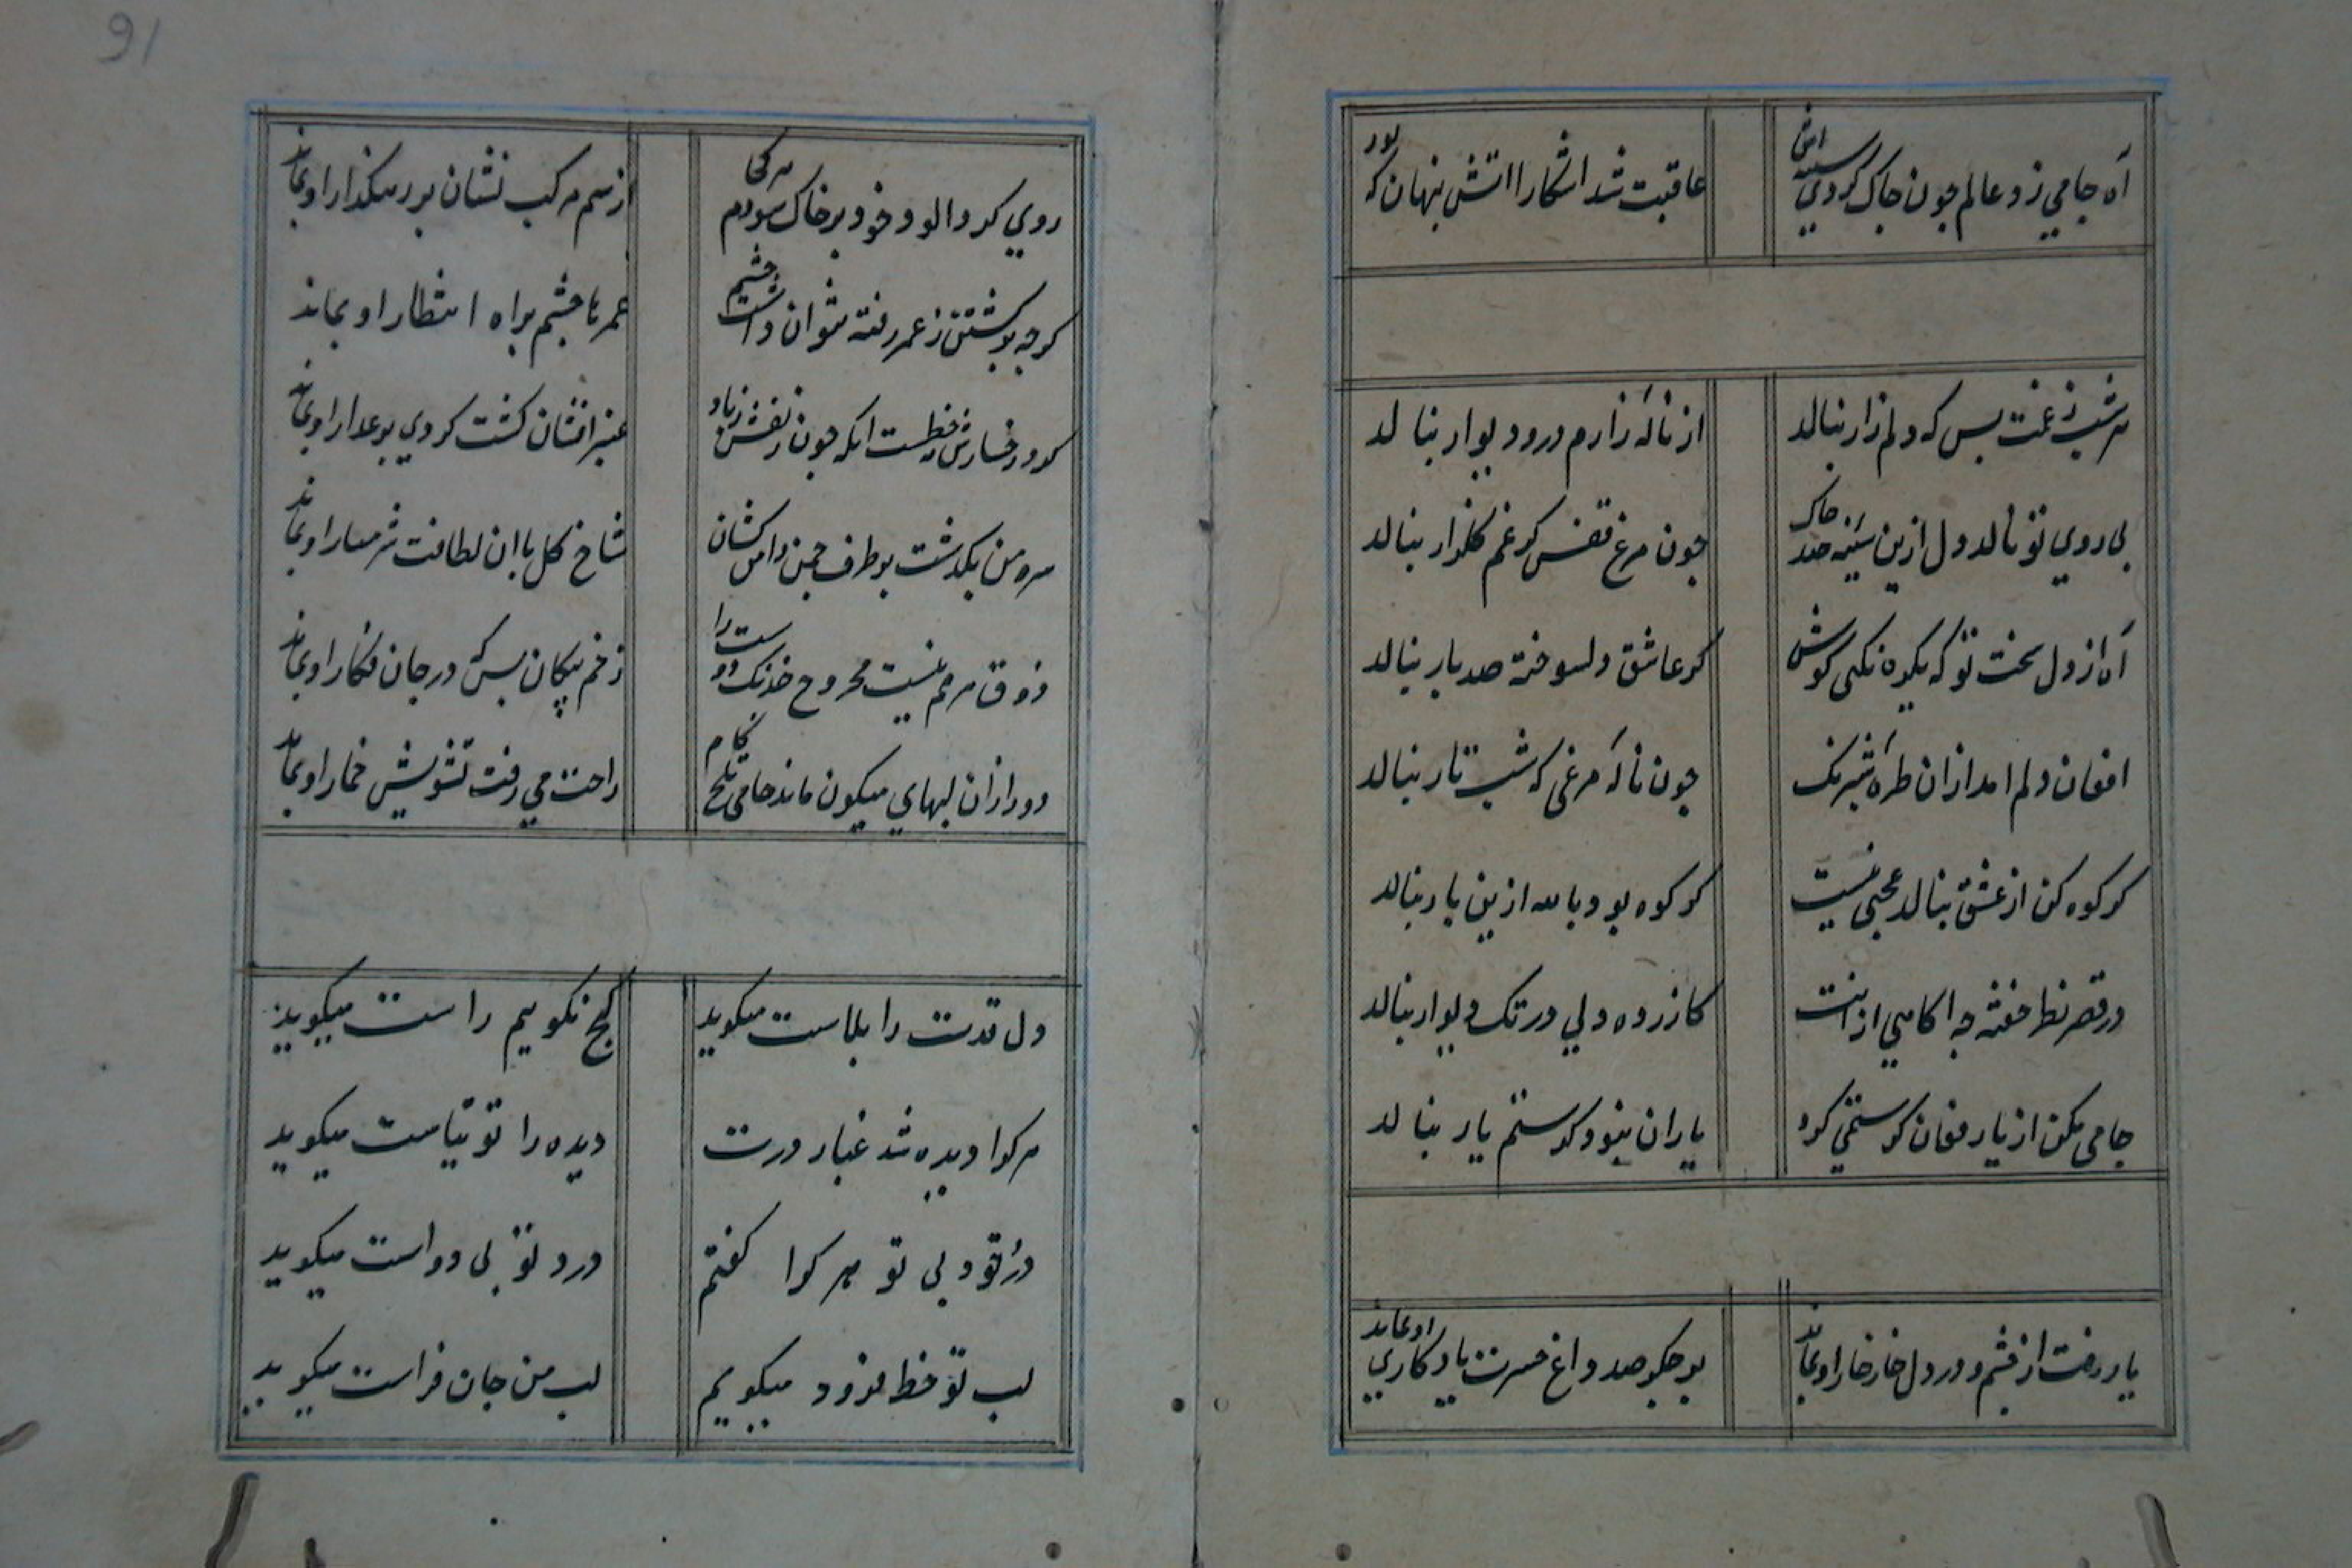 آه جامي زد عالم جون جاک کردي سینه اش
عاقبت شد اشکارا اتش پنهان که بود
هر شب ز غمت بس که دلم زار بنالد
از نالهٔ زارم در و دیوار بنالد
بی روي تو نالد دل ازین سینهٔ صد جاک
جون مرغ قفس کز غم کلزار بنالد
آه از دل سخت تو که یکره نکنی کوش
کر عاشق دلسوخته صد بار بنالد
افغان دلم امد ازان طرهٔ شبرنک
جون نالهٔ مرغی که شب تار بنالد
کر کوه کن از عشق بنالد عجبی نیست
کر کوه بود بالله ازین بار بنالد
در قصر خفته جه اکاهي ازانت
کازرده دلي در تک دیوار بنالد
جامی مکن از یار فغان کر ستمي کرد
یاران نبود کز ستم یار بنالد
یار رفت از چشم و در دل خار خار او بماند
بر جکر صد داغ حسرت یادکاري او بماند
روي کرد الود خود بر خاک سودم هر کجا
از سم مرکب نشان بر رهکذار او بماند
کر جه بر کشتن ز عمر رفته نتوان داشت چشم
عمرها چشم براه انتظار او بماند
کرد رخسارش نه خطست انکه جون زلفش ز باد
عنبر افشان کشت کردي بر عذار او بماند
سرو من بکذشت بر طرف چمن دامن کشان
شاخ کل با ان لطافت شرمسار او بماند
ذوق مرهم نیست مجروح خدنک دوست را
زخم پیکان بس که در جان فکار او بماند
دور ازان لبهاي میکون ماند جامی تلخ کام
راحت مي رفت تشویش خمار او بماند
دل قدت را بلاست میکوید
کج نکوییم راست میکوید
هر کرا دیده شد غبار درت
دیده را توتیاست میکوید
درد خود بی تو هر کرا کفتم
درد تو بی دواست میکوید
لب تو خط فزود میکویم
لب من جان فزاست میکوید